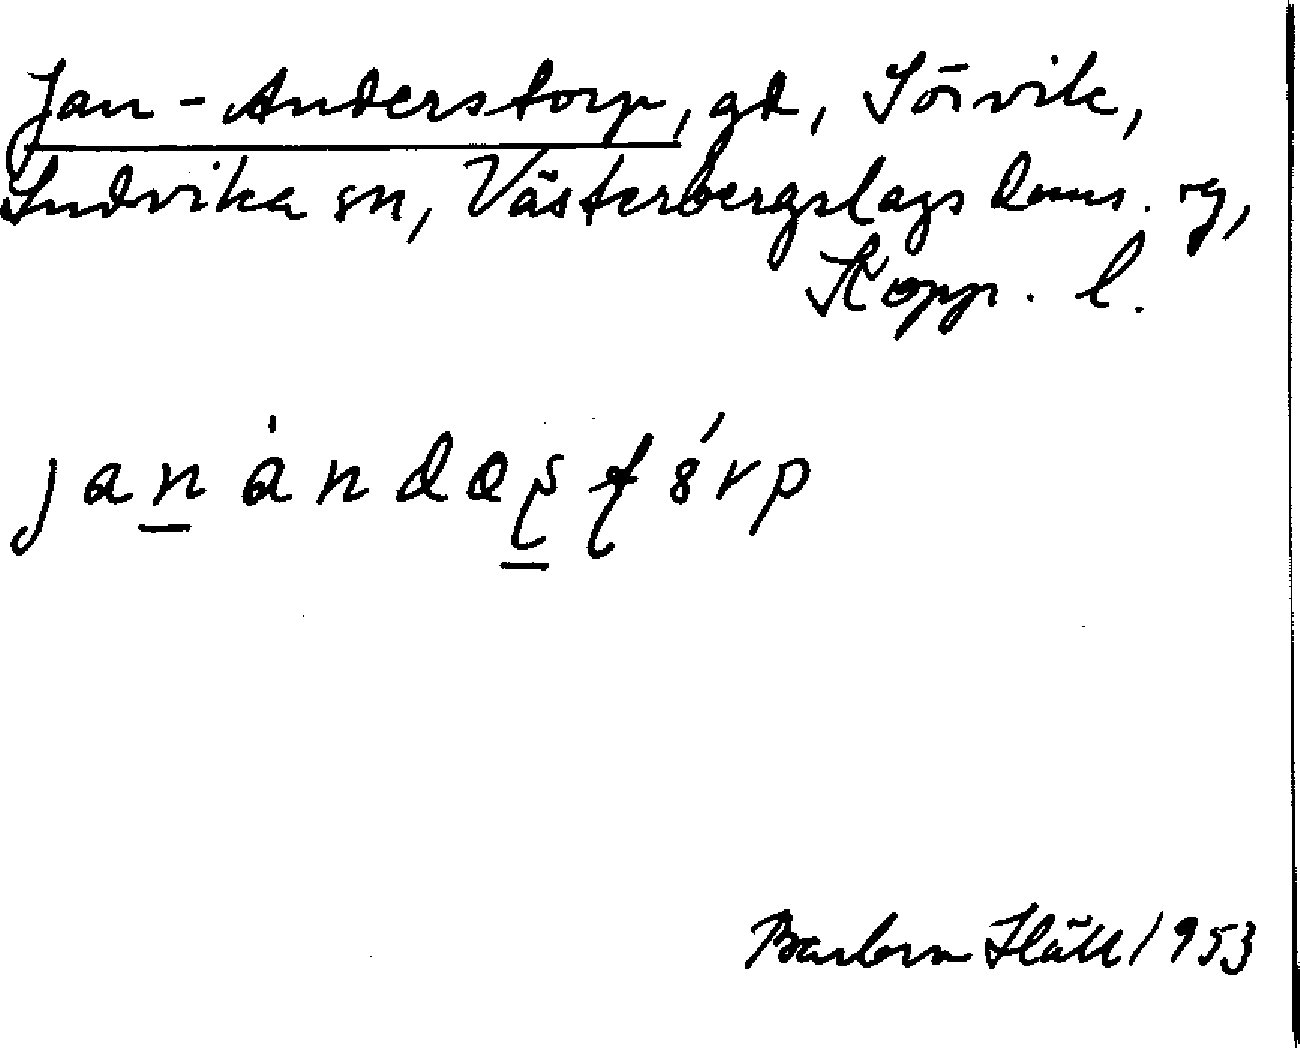 Jan-Anderstorp, gd, Sörvik,
Ludvika sn, Västerbergslags doms. sg,
Kopp. l.
jan àndəʂʈórp
Barbro 1953